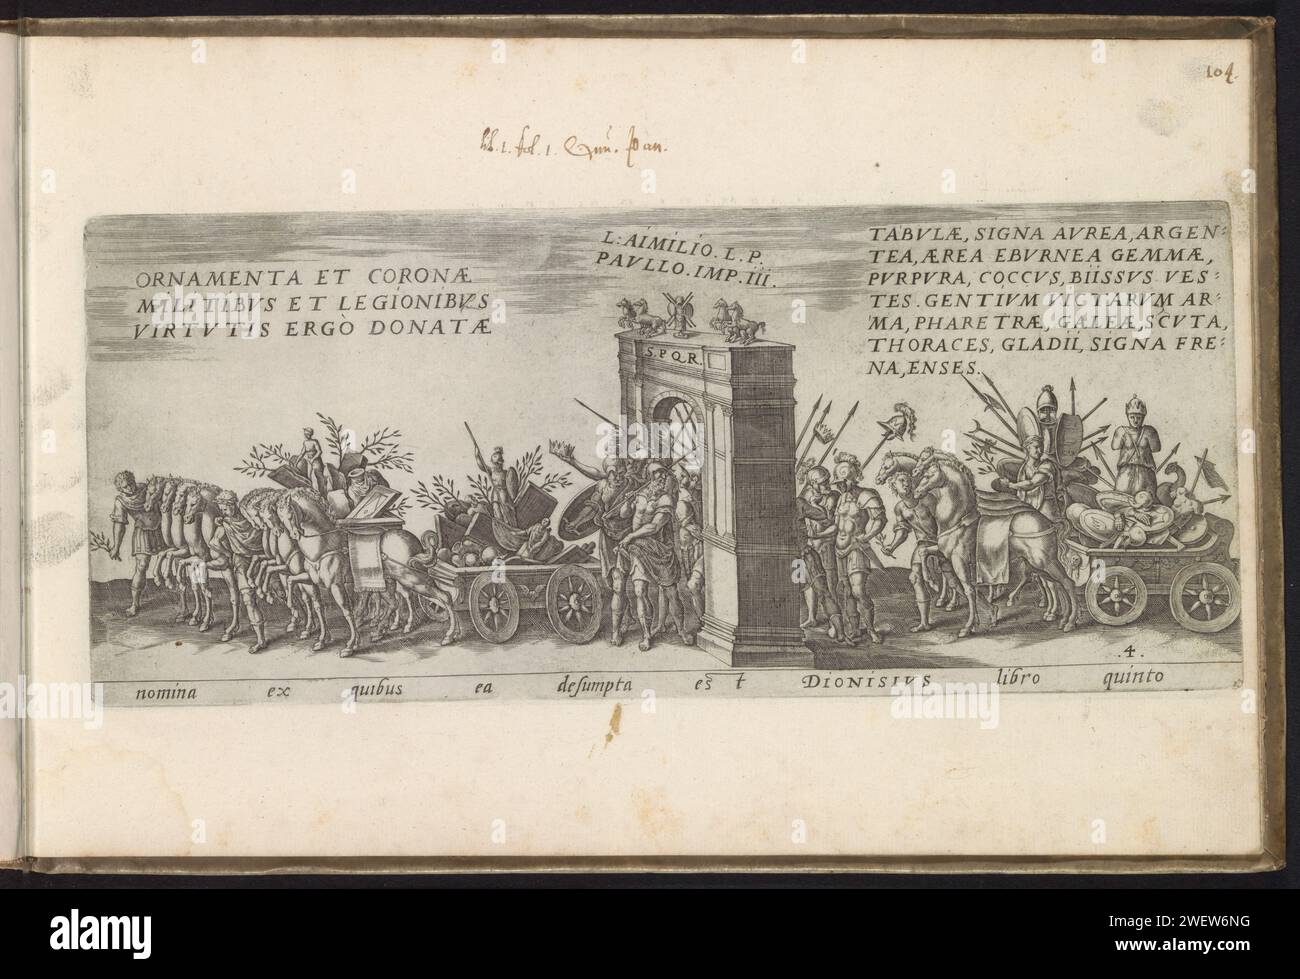 104.
lib. 1. fol. 1.
ORNAMENTA ET CORONÆ
MILITIBVS ET LEGIONIBVS
VIRTVTIS ERGÒ DONATÆ
L: AIMILIO. L. P.
PAVLLO. IMP. III.
TABVLÆ, SIGNA AVREA, ARGEN-
TEA, ÆREA EBVRNEA GEMMÆ,
PVRPVRA, COCCVS, BIISSVS VES-
TES. GENTIVM VICTARVM AR-
MA, PHARETRÆ, GALEÆ, SCVTA,
THORACES, GLADII, SIGNA FRE-
NA, ENSES.
S.P.Q.R.
.4.
nomina ex quibus ea desumpta est DIONISIVS libro quinto
alamy
Image ID: 2WEW6NG
www.alamy.com